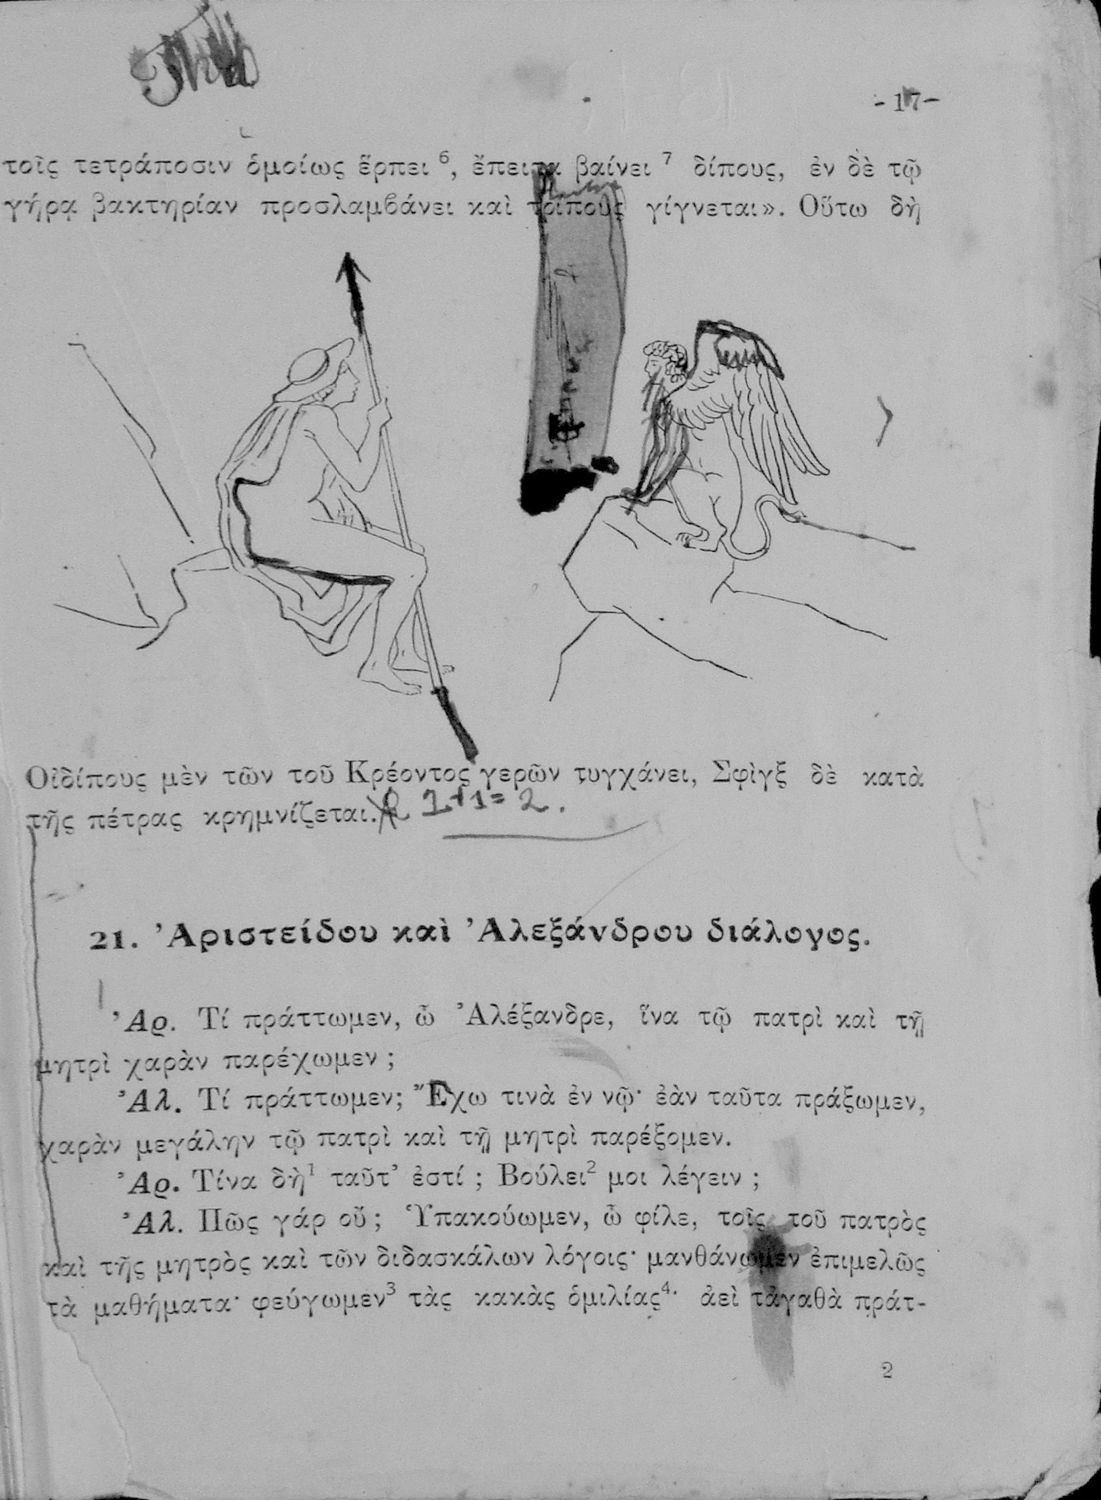 -17-
τοῖς τετράποσιν ὁμοίως ἕρπει 6, ἔπειτα βαίνει 7 δίπους, ἐν δὲ τῷ
γήρᾳ βακτηρίαν προσλαμβάνει καὶ τρίπους γίγνεται». Οὕτω δὴ
Οἰδίπους μὲν τῶν τοῦ Κρέοντος γερῶν τυγχάνει, Σφὶγξ δὲ κατὰ
τῆς πέτρας κρημνίζεται. 1+1=2.
21. Ἀριστείδου καὶ Ἀλεξάνδρου διάλογος.
Ἀρ. Τί πράττωμεν, ὦ Ἀλέξανδρε, ἵνα τῷ πατρὶ καὶ τῇ
μητρὶ χαρὰν παρέχωμεν ;
Ἀλ. Τί πράττωμεν; Ἔχω τινὰ ἐν νῷ· ἐὰν ταῦτα πράξωμεν,
χαρὰν μεγάλην τῷ πατρὶ καὶ τῇ μητρὶ παρέξομεν.
Ἀρ. Τίνα δὴ1 ταῦτ’ ἐστί ; Βούλει2 μοι λέγειν ;
Ἀλ. Πῶς γάρ οὔ ; Ὑπακούωμεν, ὦ φίλε, τοῖς τοῦ πατρὸς
καὶ τῆς μητρὸς καὶ τῶν διδασκάλων λόγοις· μανθάνωμεν ἐπιμελῶς
τὰ μαθήματα· φεύγωμεν3 τὰς κακὰς ὁμιλίας4· ἀεὶ τἀγαθὰ πράτ-
2